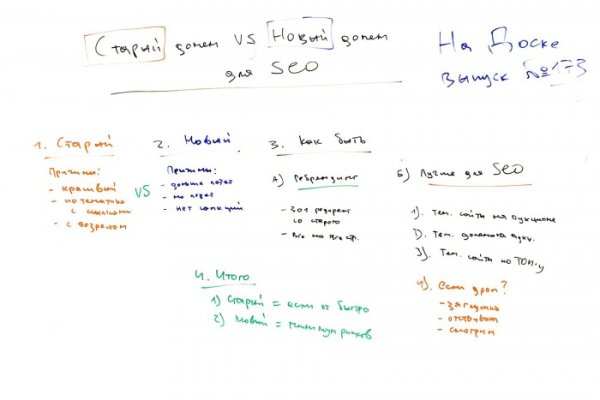 Старый домен VS Новый домен
для SEO
На Доске
выпуск №173
1. Старый
Причины:
- красивый
- по тематике
с ссылками
- с возрастом
VS
2. Новый
Причины:
- дольше
- не
- нет санкций
3. Как быть
А) Ребрендинг
- 301 редирект
со старого
- Все на все стр.
Б) Лучше для SEO
1). Тем. сайты на аукционе
2). Тем. домены
3). Тем. сайты по ТОП-у
4). Если дроп?
- заглушка
- отстаиваем
- смотрим
4. Итого
1) Старый = если ог быстро
2) Новый = минимум рисков